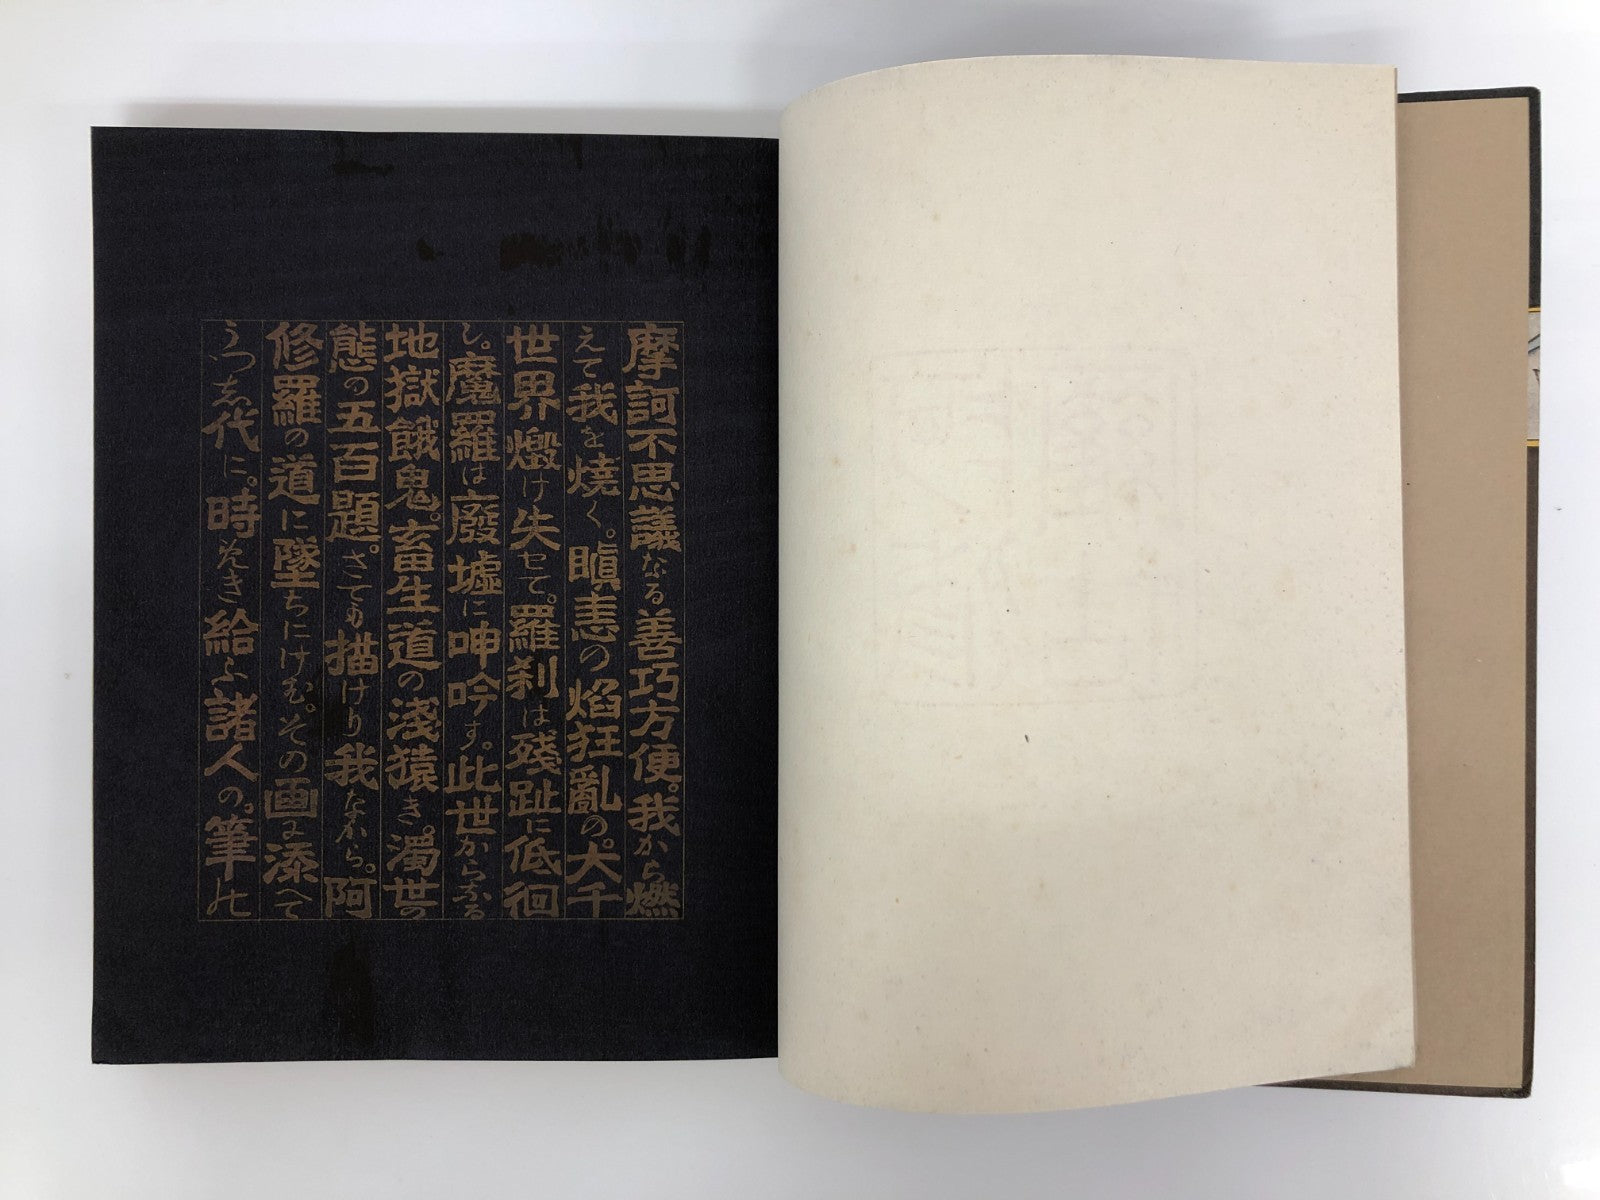 摩訶不思議なる善巧方便。我から燃
えて我を燒く。瞋恚の焰狂亂の。大千
世界燬け失せて。羅刹は殘趾に低徊
し。魔羅は廢墟に呻吟す。此世からなる
地獄餓鬼。畜生道の淺猿き。濁世の
態の五百題。さても描けり我ながら。阿
修羅の道に墜ちにけむ。その画に添へて
うつし代に。時めき給ふ諸人の。筆の